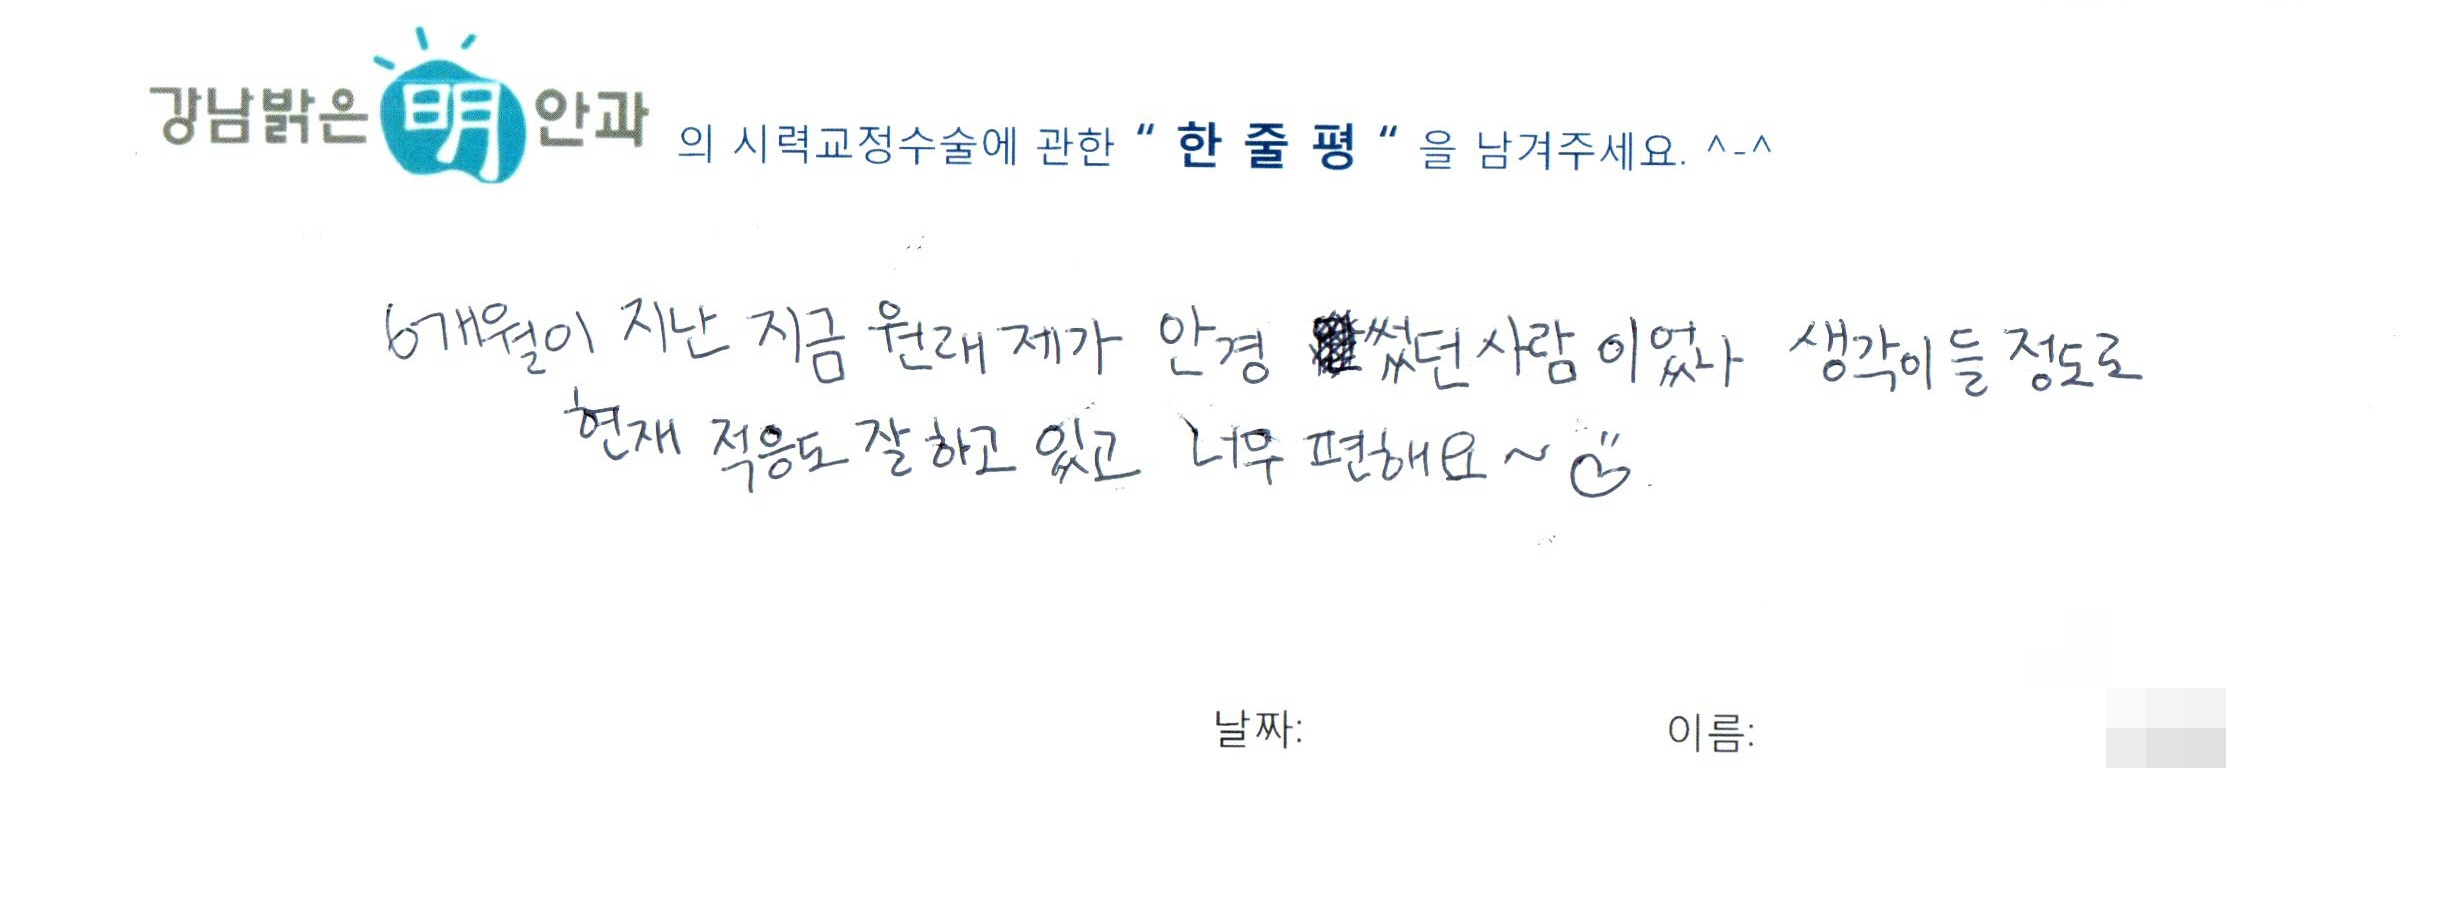 강남밝은明안과 의 시력교정수술에 관한 “ 한 줄 평 “ 을 남겨주세요. ^-^
6개월이 지난 지금 원래 제가 안경 썼던 사람이었나 생각이 들 정도로
현재 적응도 잘 하고 있고 너무 편해요~
날짜: 이름: